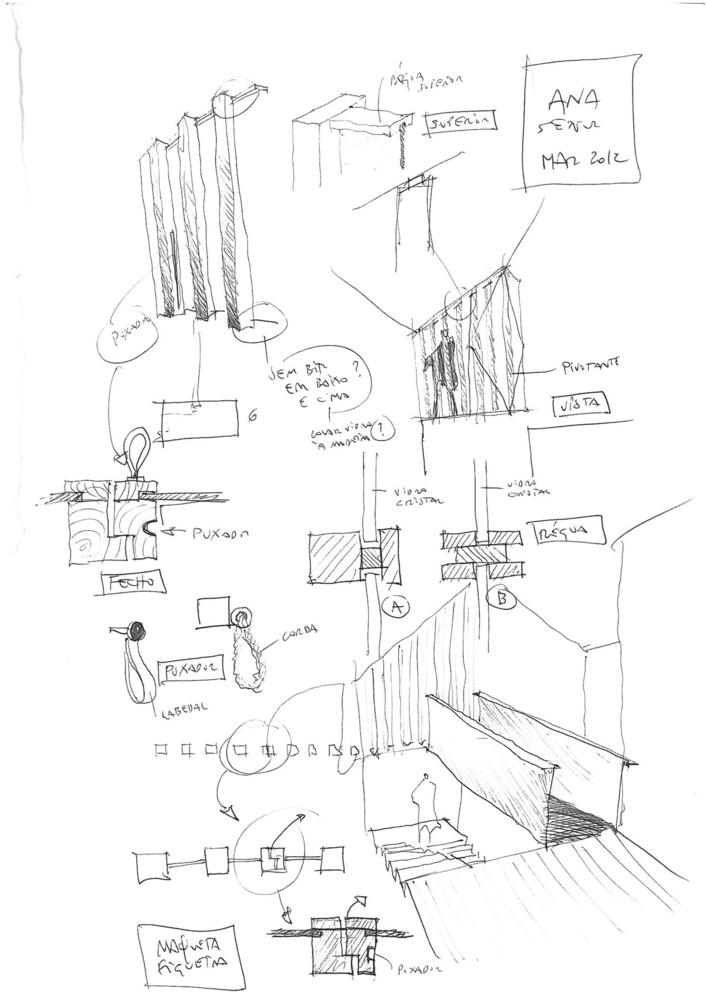 RÉGUA
SUPERIOR
SUPERIOR
ANA
MAR 2012
PUXADOR
SEM BIT
EM BAIXO ?
E CIMA
COLAR VIDRO
À MADEIRA ?
6
PIVOTANTE
VISTA
VIDRO
CRISTAL
VIDRO
CRISTAL
PUXADOR
RÉGUA
FECHO
A
B
CORDA
PUXADOR
CABEDAL
MAQUETA
FIGUEIRA
PUXADOR